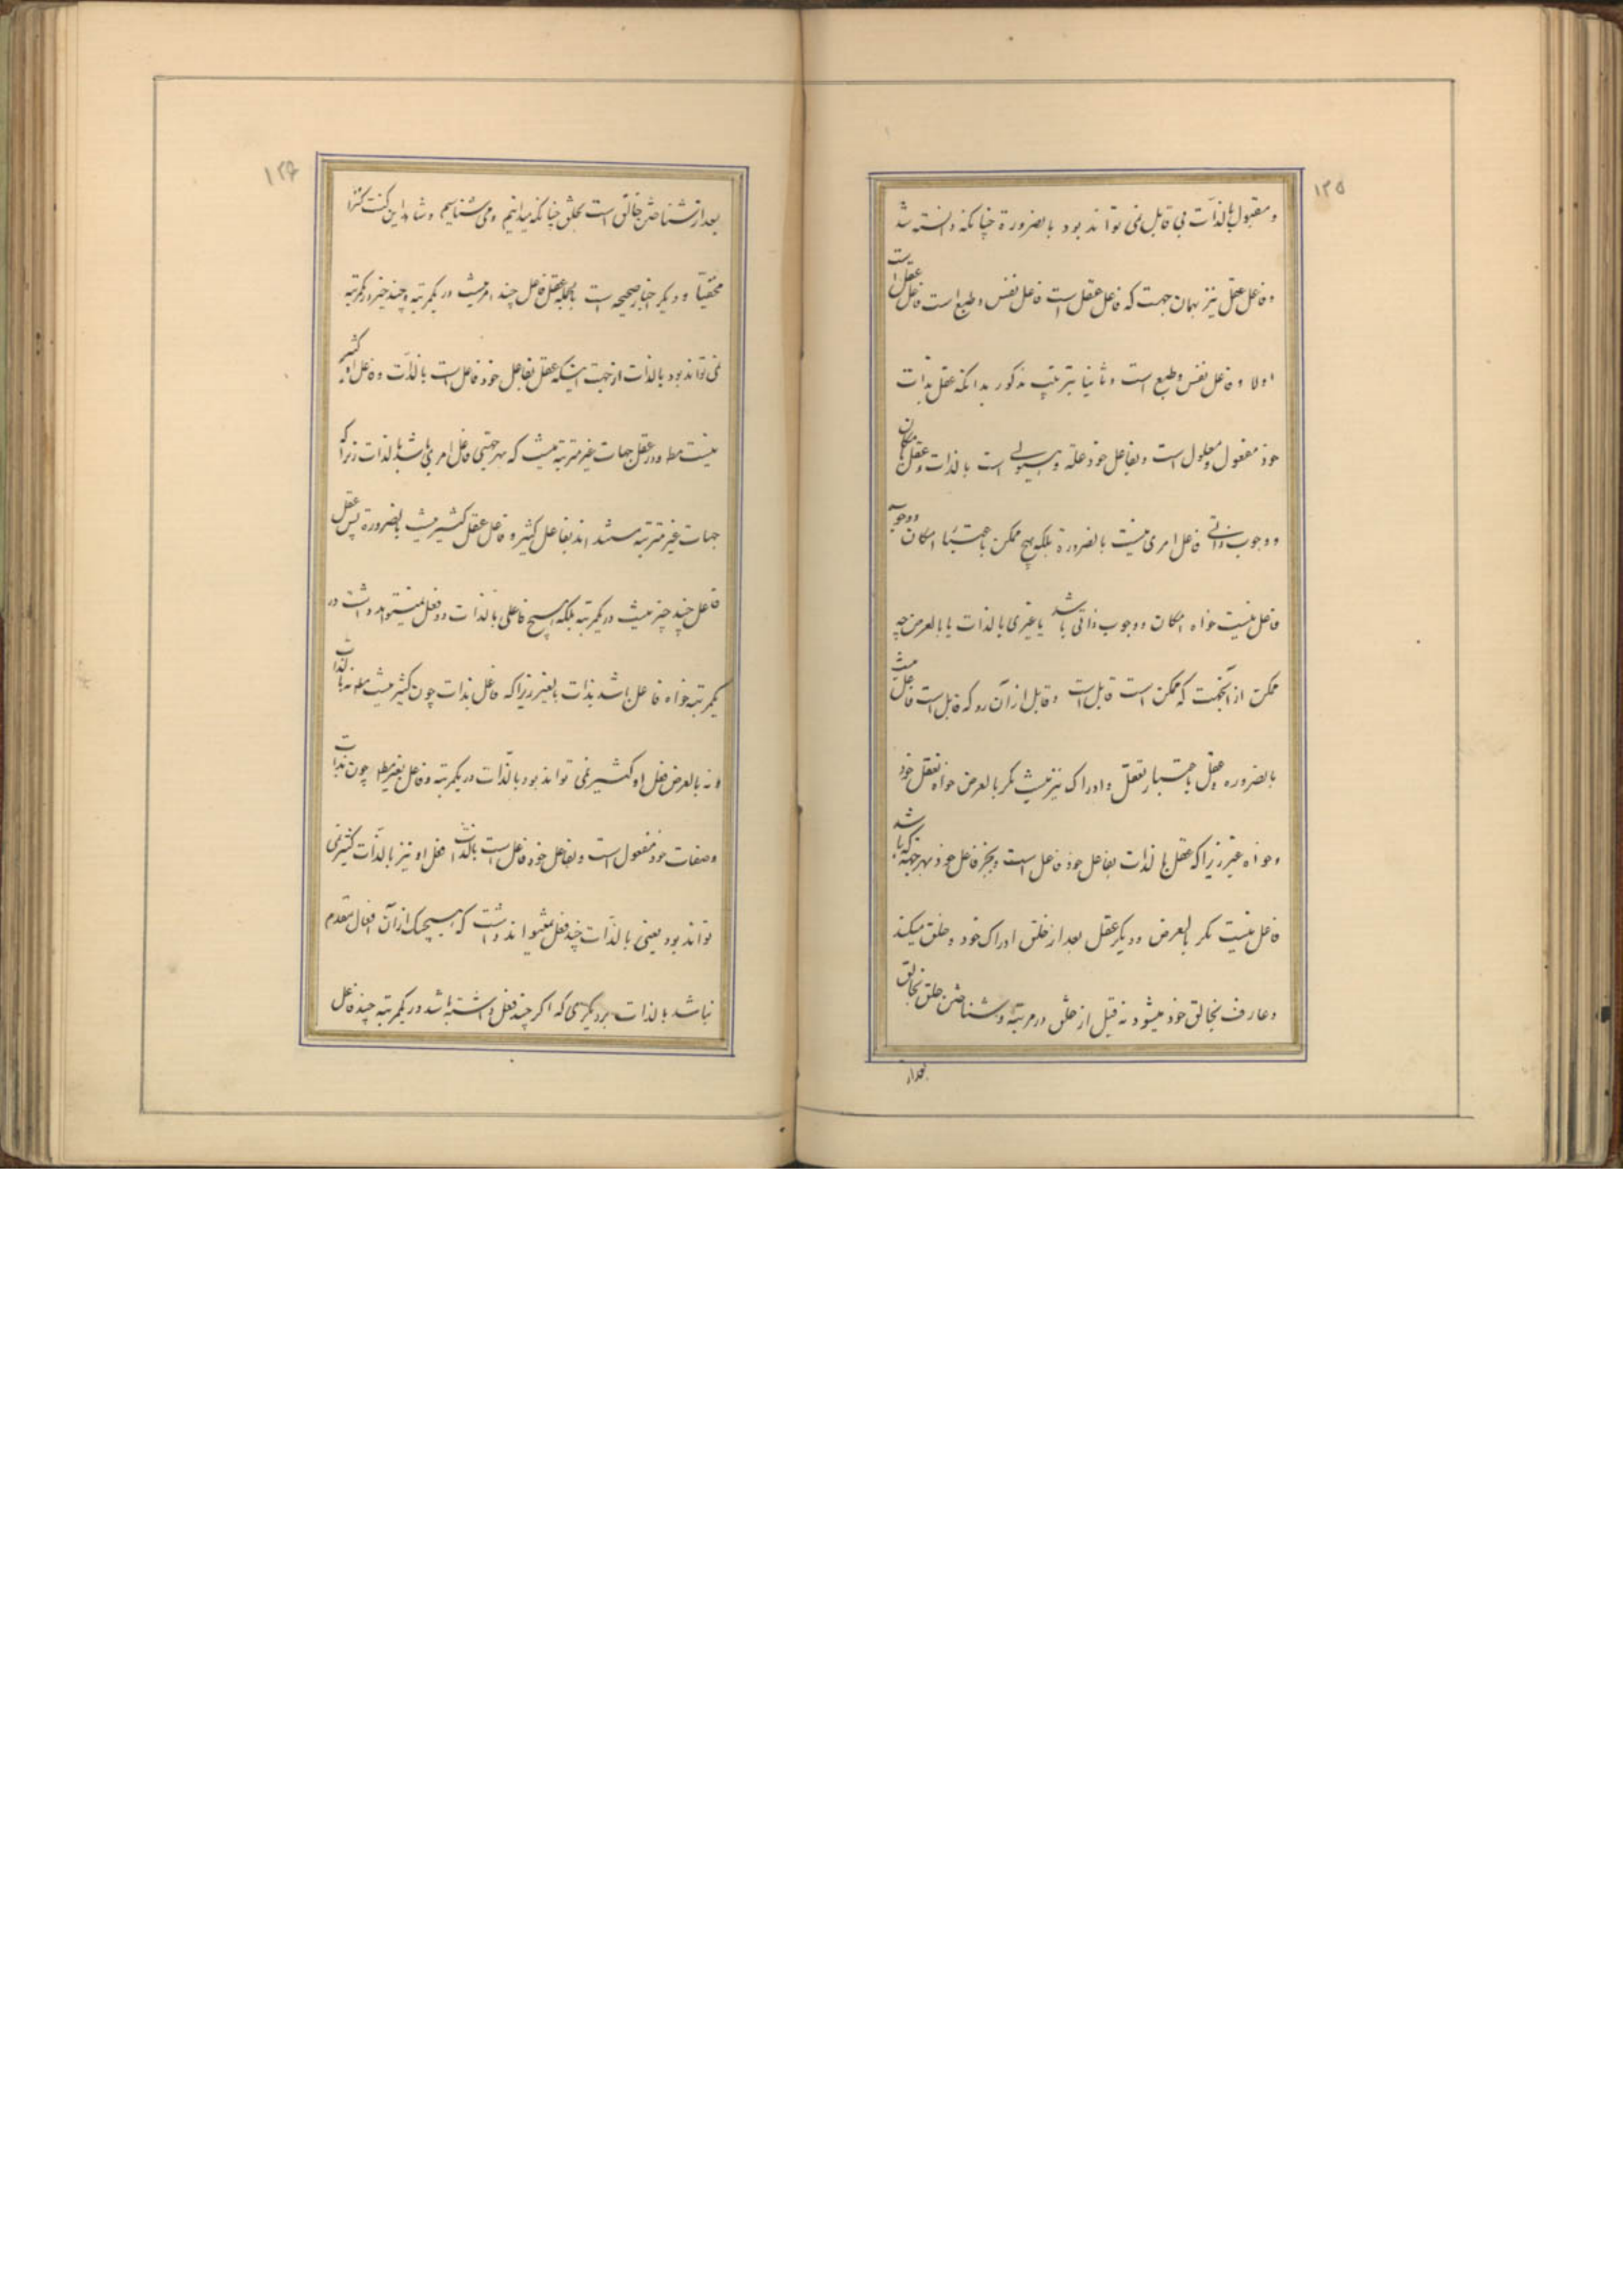 ۱۲۵
و مقبول بالذات بی قابل نمی تواند بود بالضرورة چنانکه دانسته شد
و فاعل عقل نیز بهمان جهت که فاعل عقل است فاعل نفس و طبع است فاعل عقل است
اولا و فاعل نفس و طبع است و ثانیا بترتیب مذکور بدانکه عقل بذات
خود مفعول و معلول است و بفاعل خود علة و هیولی است بالذات و عقل بامکان
و وجوب ذاتی فاعل امری نیست بالضرورة بلکه هیچ ممکن باعتبار امکان و وجوب
فاعل نیست خواه امکان و وجوب ذاتی باشد یا غیری بالذات یا بالعرض چه
ممکن از آنجهت که ممکن است قابل است و قابل از آن رو که قابل است فاعل نیست
بالضروره عقل باعتبار تعقل و ادراک نیز نیست مکر بالعرض خواه تعقل خود
و خواه غیر زیرا که عقل بالذات بفاعل خود فاعل است و بجز فاعل خود بهر جهة که باشد
فاعل نیست مکر بالعرض و دیکر عقل بعد از خلق ادراک خود و خلق میکند
و عارف بخالق خود میشود نه قبل از خلق در مرتبه و شناختن خلق بخالق
بعد از
۱۲۶
بعد از شناختن خالق است بخلق چنانکه میدانیم و می شناسیم و شاهد این کنت کنزا
مخفیا و دیکر اخبار صحیحه است بالجمله عقل فاعل چند امر نیست در یکمرتبه و چند چیز در یکمرتبه
نمی تواند بود بالذات از جهت اینکه عقل بفاعل خود فاعل است بالذات و فاعل او کثیر
نیست مط و در عقل جهات غیر مترتبه نیست که بهر جهتی فاعل امری باشد بالذات زیرا که
جهات غیر مترتبه مستند اند بفاعل کثیر و فاعل عقل کثیر نیست بالضرورة پس عقل
فاعل چند چیز نیست در یکمرتبه بلکه هیچ فاعلی بالذات دو فعل نمیتواند داشت در
یکمرتبه خواه فاعل باشد بذات یا بغیر زیرا که فاعل بذات چون کثیر نیست مط نه بالذات
و نه بالعرض فعل او کثیر نمی تواند بود بالذات در یکمرتبه و فاعل بغیر مط چون بذات
و صفات خود مفعول است و بفاعل خود فاعل است بالذات فعل او نیز بالذات کثیر نمی
تواند بود یعنی بالذات چند فعل نمیتواند داشت که هیچیک از آن افعال مقدم
نباشد بالذات بر دیکری که اکر چند فعل داشته باشد در یکمرتبه چند فاعل